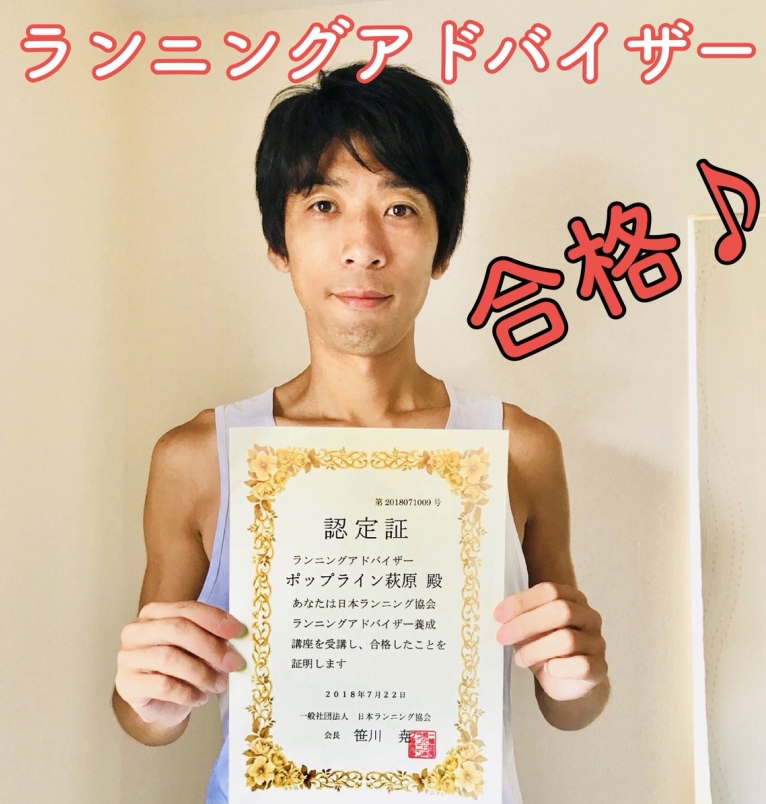 ランニングアドバイザー
合格♪
第2018071009号
認定証
ランニングアドバイザー
ポップライン萩原 殿
あなたは日本ランニング協会
ランニングアドバイザー養成
講座を受講し、合格したことを
証明します
2018年7月22日
一般社団法人 日本ランニング協会
会長 笹川 尭